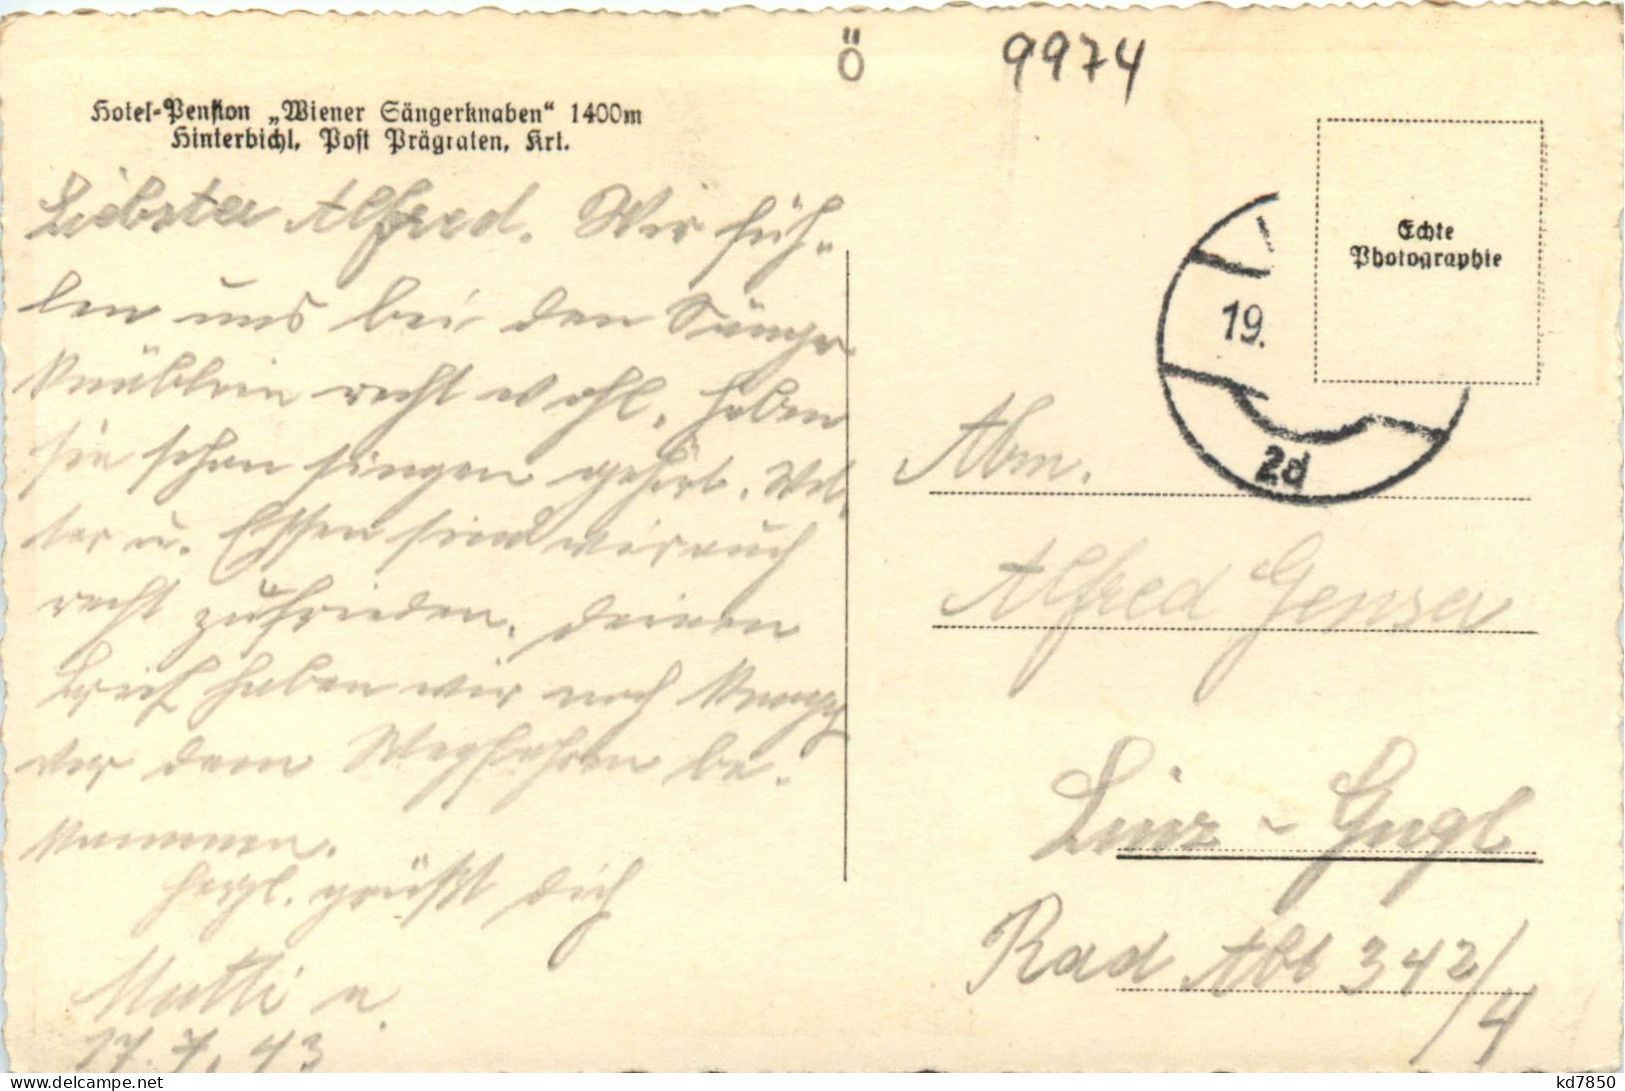 Ö
9974
Hotel-Pension „Wiener Sängerknaben“ 1400m
Hinterbichl, Post Prägraten, Krt.
Liebster Alfred. Wir füh-
len uns bei den Sänger
knäblein recht wohl, haben
sie schon singen gehört. Wet
ter u. Essen sind wir auch
recht zufrieden. Deinen
Brief haben wir noch knapp
vor dem Wegfahren be-
kommen.
Herzl. grüßt dich
Mutti u.
17.7.43
Echte
Photographie
19.
2d
Abm.
Alfred Genser
Linz - Gugl
Rad Abt 342/4
kd7850